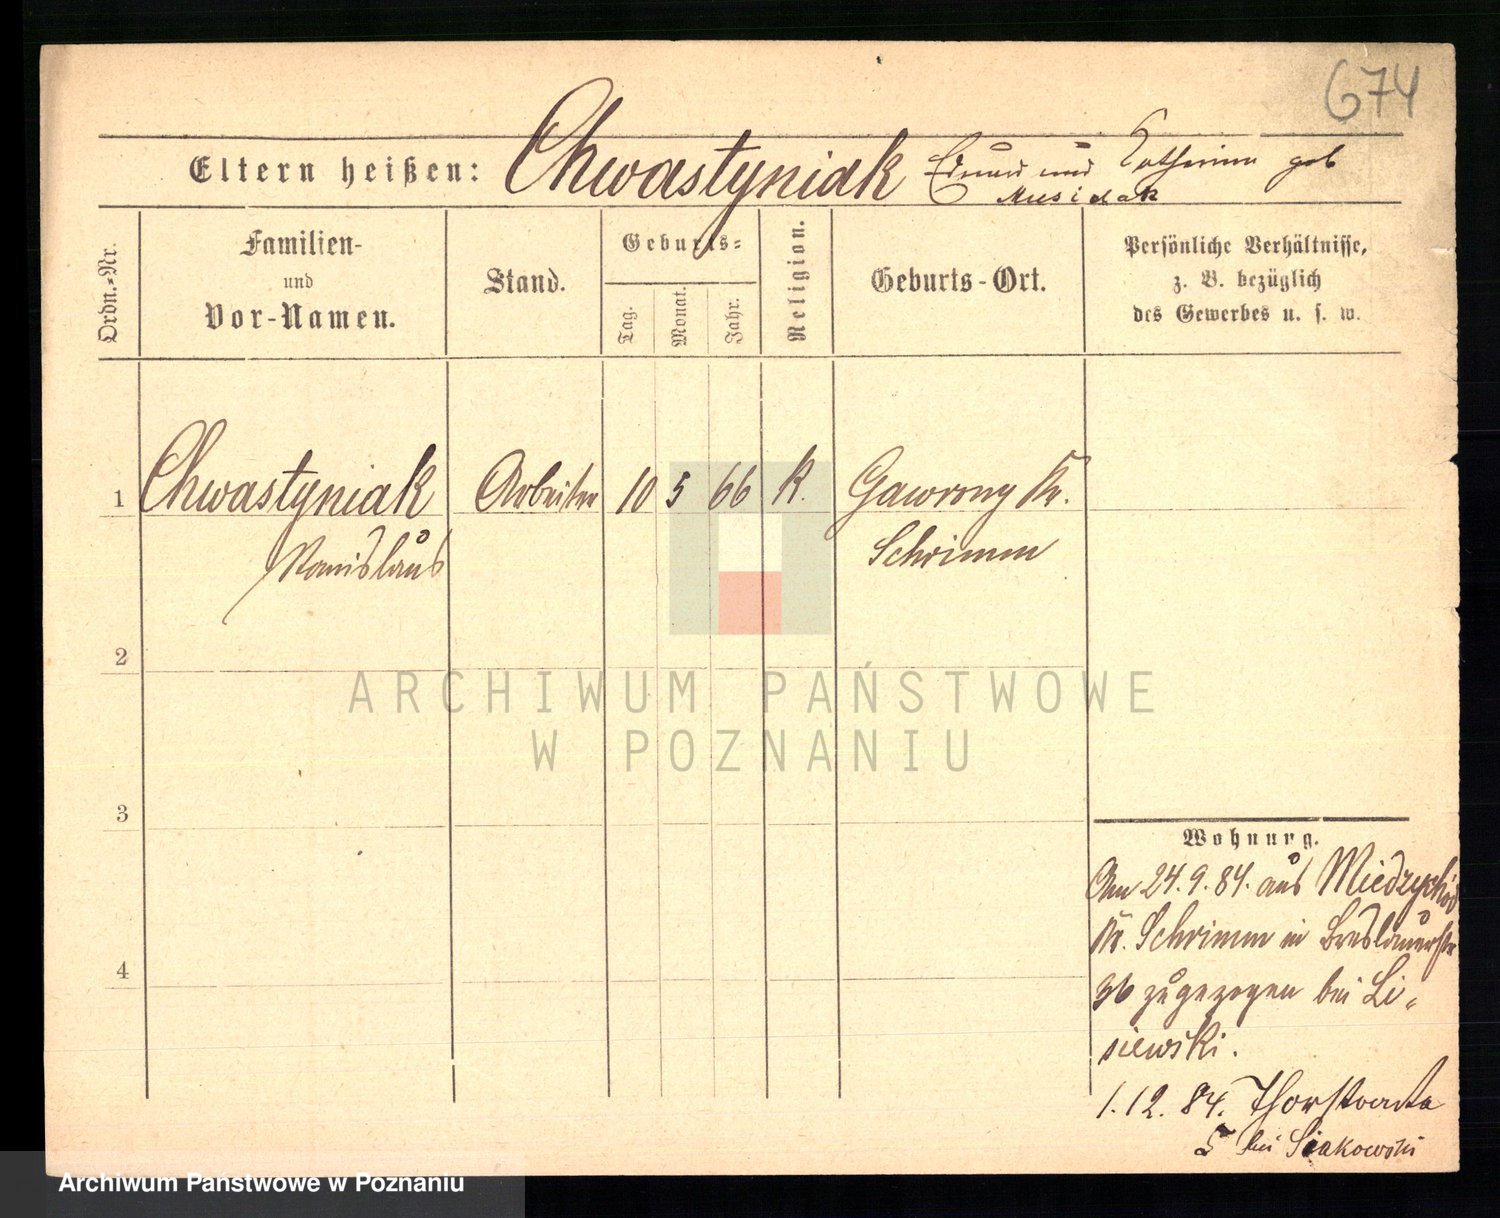 674
Eltern heißen: Chwastyniak und Catharina geb
Musidak
Ordn.=Nr.
Familien-
und
Vor-Namen.
Stand.
Geburts=
Tag.
Monat.
Jahr.
Religion.
Geburts-Ort.
Persönliche Verhältnisse,
z. B. bezüglich
des Gewerbes u. s. w.
1 Chwastyniak Arbeiter 10 5 66 k. Gawrony Kr.
Stanislaus Schrimm
2
3
4
ARCHIWUM PAŃSTWOWE
W POZNANIU
Wohnung.
Am 24.9.84. aus Miedzychód
Kr. Schrimm in Breslauerstr
36 zugezogen bei Li=
siewski.
1.12.84. Thorstraße
5 bei Siakowski
Archiwum Państwowe w Poznaniu